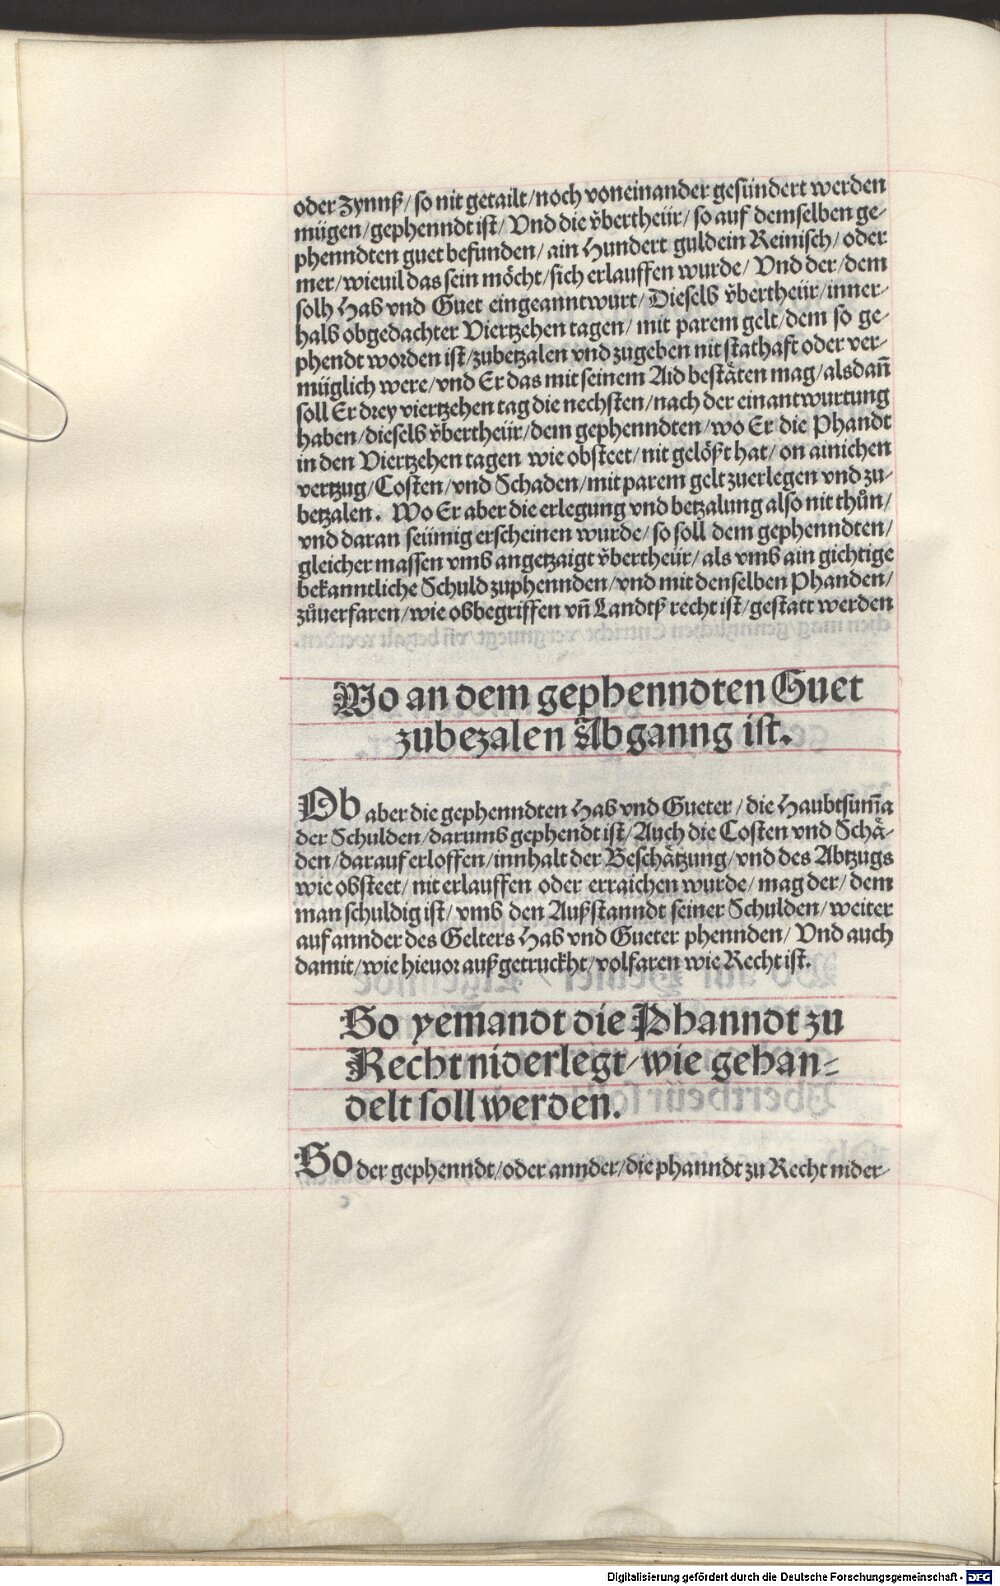 oder Zynnß/ so nit getailt/ noch voneinander gesündert werden
mügen/ gephenndt ist/ Vnd die v̈bertheür/ so auf demselben ge-
phenndten guet befunden/ ain Hundert guldein Reinisch/ oder
mer/ wieuil das sein möcht/ sich erlauffen wurde/ Vnd der/ dem
solh Hab vnd Guet eingeanntwurt/ Dieselb v̈bertheür/ inner-
halb obgedachter Viertzehen tagen/ mit parem gelt/ dem so ge-
phendt worden ist/ zubetzalen vnd zugeben nit stathaft oder ver-
müglich were/ vnd Er das mit seinem Aid bestäten mag/ alsdañ
soll Er drey viertzehen tag die nechsten/ nach der einantwurtung
haben/ dieselb v̈bertheür/ dem gephenndten/ wo Er die Phandt
in den Viertzehen tagen wie obsteet/ nit gelößt hat/ on ainichen
vertzug/ Costen/ vnd Schaden/ mit parem gelt zuerlegen vnd zu-
betzalen. Wo Er aber die erlegung vnd betzalung also nit thůn/
vnd daran seümig erscheinen wurde/ so soll dem gephenndten/
gleicher massen vmb angetzaigt v̈bertheür/ als vmb ain gichtige
bekanntliche Schuld zuphennden/ vnd mit denselben Phanden/
zůuerfaren/ wie obbegriffen vñ Landtß recht ist/ gestatt werden
Wo an dem gephenndten Guet
zubezalen Abganng ist.
Ob aber die gephenndten Hab vnd Gueter/ die Haubtsum̃a
der Schulden/ darumb gephendt ist/ Auch die Costen vnd Schä-
den/ darauf erloffen/ innhalt der Beschätzung/ vnd des Abtzugs
wie obsteet/ nit erlauffen oder erraichen wurde/ mag der/ dem
man schuldig ist/ vmb den Außstanndt seiner Schulden/ weiter
auf annder des Gelters Hab vnd Gueter phennden/ Vnd auch
damit/ wie hieuor außgetruckht/ volfaren wie Recht ist.
So yemandt die Phanndt zu
Recht niderlegt/ wie gehan-
delt soll werden.
So der gephenndt/ oder annder/ die phanndt zu Recht nider-
Digitalisierung gefördert durch die Deutsche Forschungsgemeinschaft - DFG